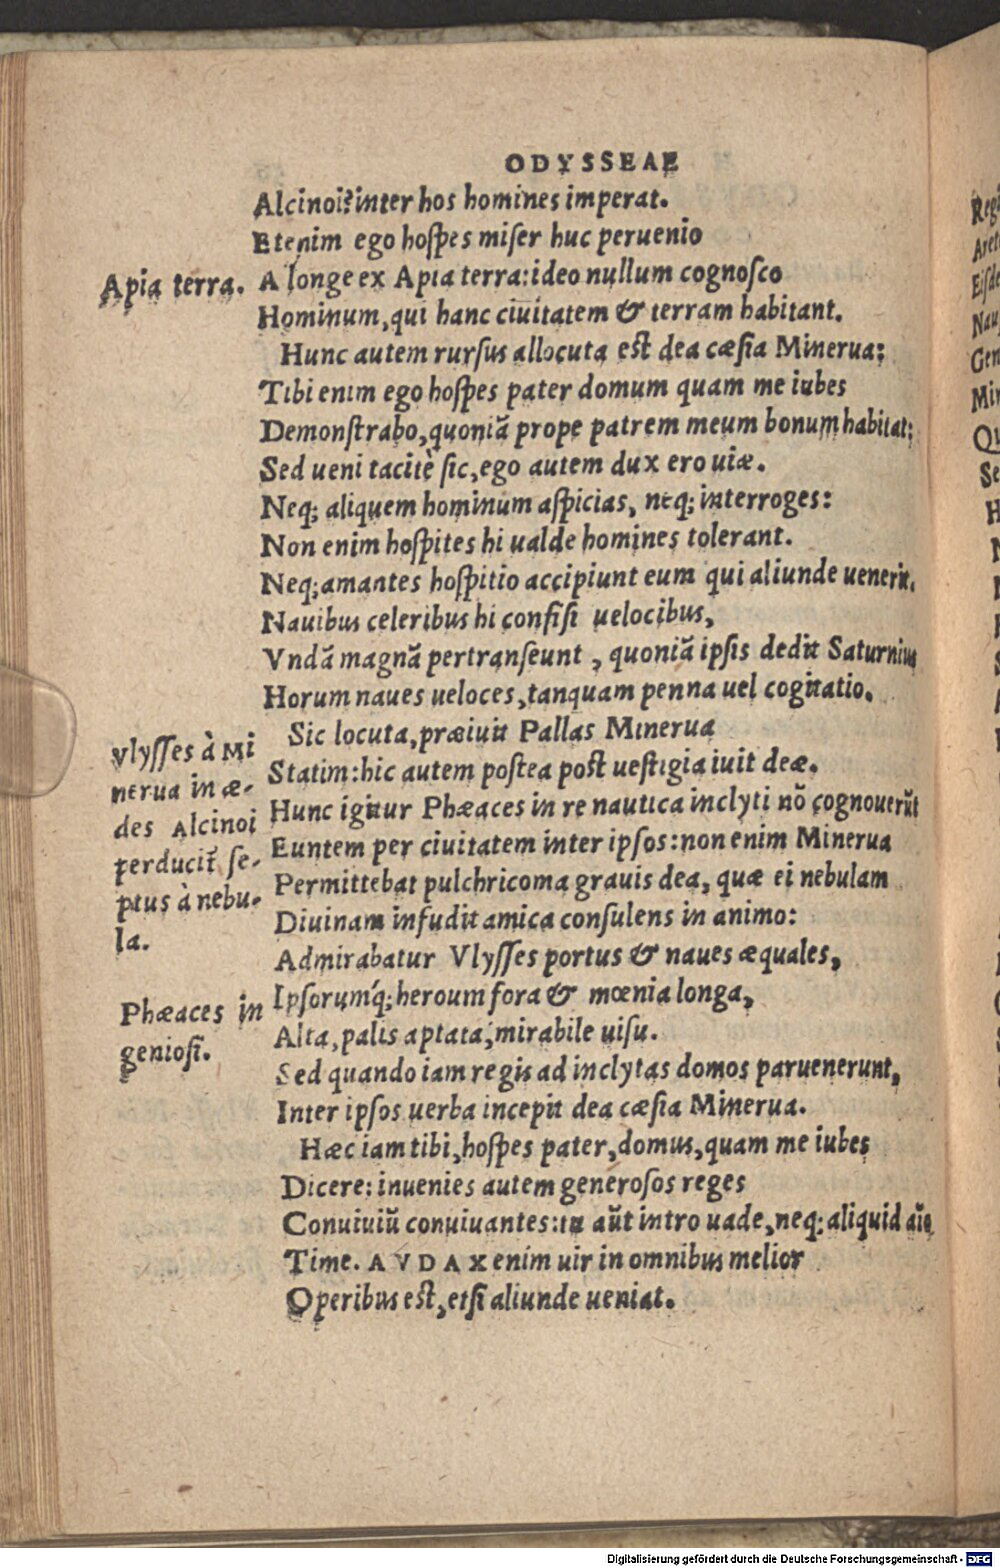 ODYSSEAE
Alcinoi? inter hos homines imperat.
Etenim ego hoſpes miſer huc peruenio
Apia terra.
A longe ex Apia terra: ideo nullum cognoſco
Hominum, qui hanc ciuitatem & terram habitant.
Hunc autem rurſus allocuta eſt dea cæſia Minerua:
Tibi enim ego hoſpes pater domum quam me iubes
Demonſtrabo, quoniã prope patrem meum bonum habitat:
Sed ueni tacitè ſic, ego autem dux ero uiæ.
Neq; aliquem hominum aſpicias, neq; interroges:
Non enim hoſpites hi ualde homines tolerant.
Neq; amantes hoſpitio accipiunt eum qui aliunde uenerit.
Nauibus celeribus hi confiſi uelocibus,
Vndã magnã pertranſeunt, quoniã ipſis dedit Saturnius
Horum naues ueloces, tanquam penna uel cogitatio.
Sic locuta, præiuit Pallas Minerua
Vlyſſes à Mi
nerua in æ-
des Alcinoi
perducit̃ ſe-
ptus à nebu-
la.
Statim: hic autem poſtea poſt ueſtigia iuit deæ.
Hunc igitur Phæaces in re nautica inclyti nõ cognouerũt
Euntem per ciuitatem inter ipſos: non enim Minerua
Permittebat pulchricoma grauis dea, quæ ei nebulam
Diuinam infudit amica conſulens in animo:
Admirabatur Vlyſſes portus & naues æquales,
Phæaces in
genioſi.
Ipſorumq́; heroum fora & mœnia longa,
Alta, palis aptata, mirabile uiſu.
Sed quando iam regis ad inclytas domos paruenerunt,
Inter ipſos uerba incepit dea cæſia Minerua.
Hæc iam tibi, hoſpes pater, domus, quam me iubes
Dicere: inuenies autem generoſos reges
Conuiuiũ conuiuantes: tu aũt intro uade, neq; aliquid aĩo
Time. AVDAX enim uir in omnibus melior
Operibus eſt, etſi aliunde ueniat.
Digitalisierung gefördert durch die Deutsche Forschungsgemeinschaft - DFG